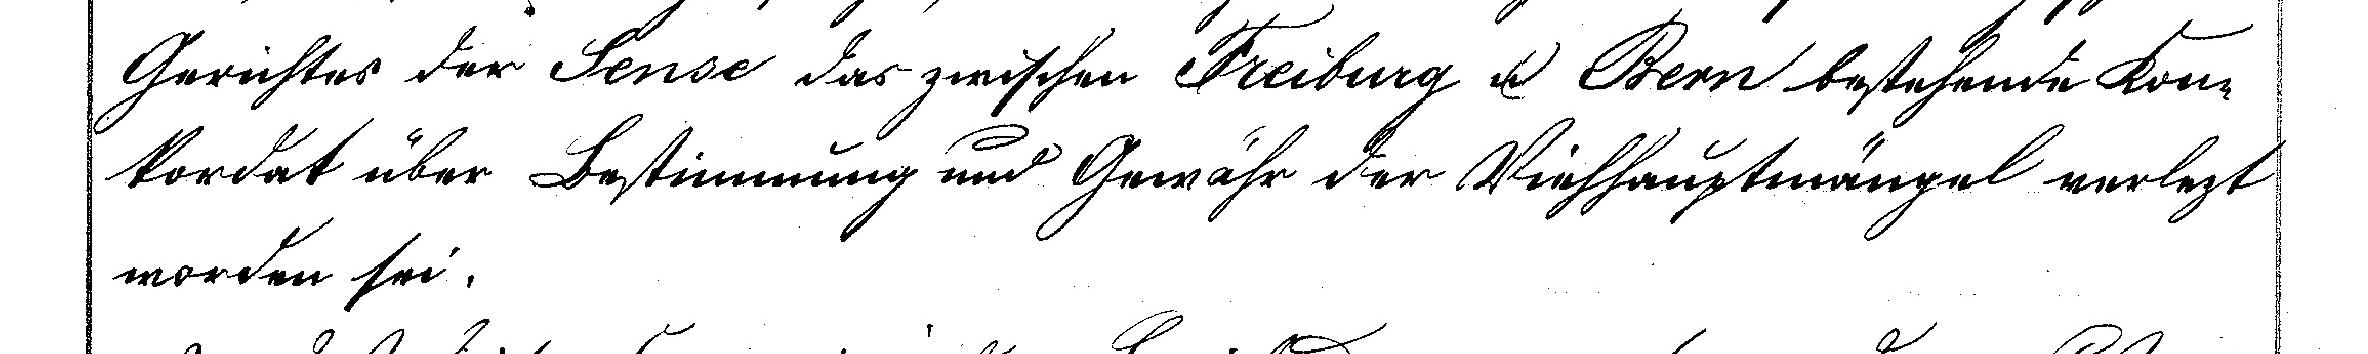 Gerichtes der Sense das zwischen Freiburg & Bern bestehende Kon-
kordat über Bestimmung und Gewähr der Viehhauptmängel verlezt
worden sei.